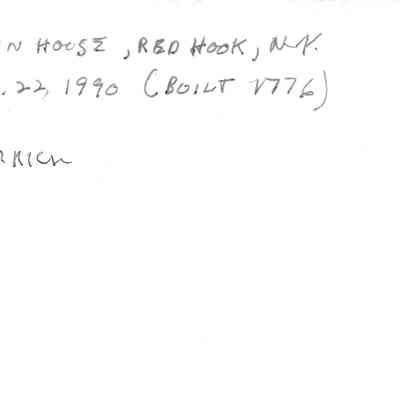 N HOUSE, RED HOOK, N.Y.
. 22, 1990 (BUILT 1776)
RRICH